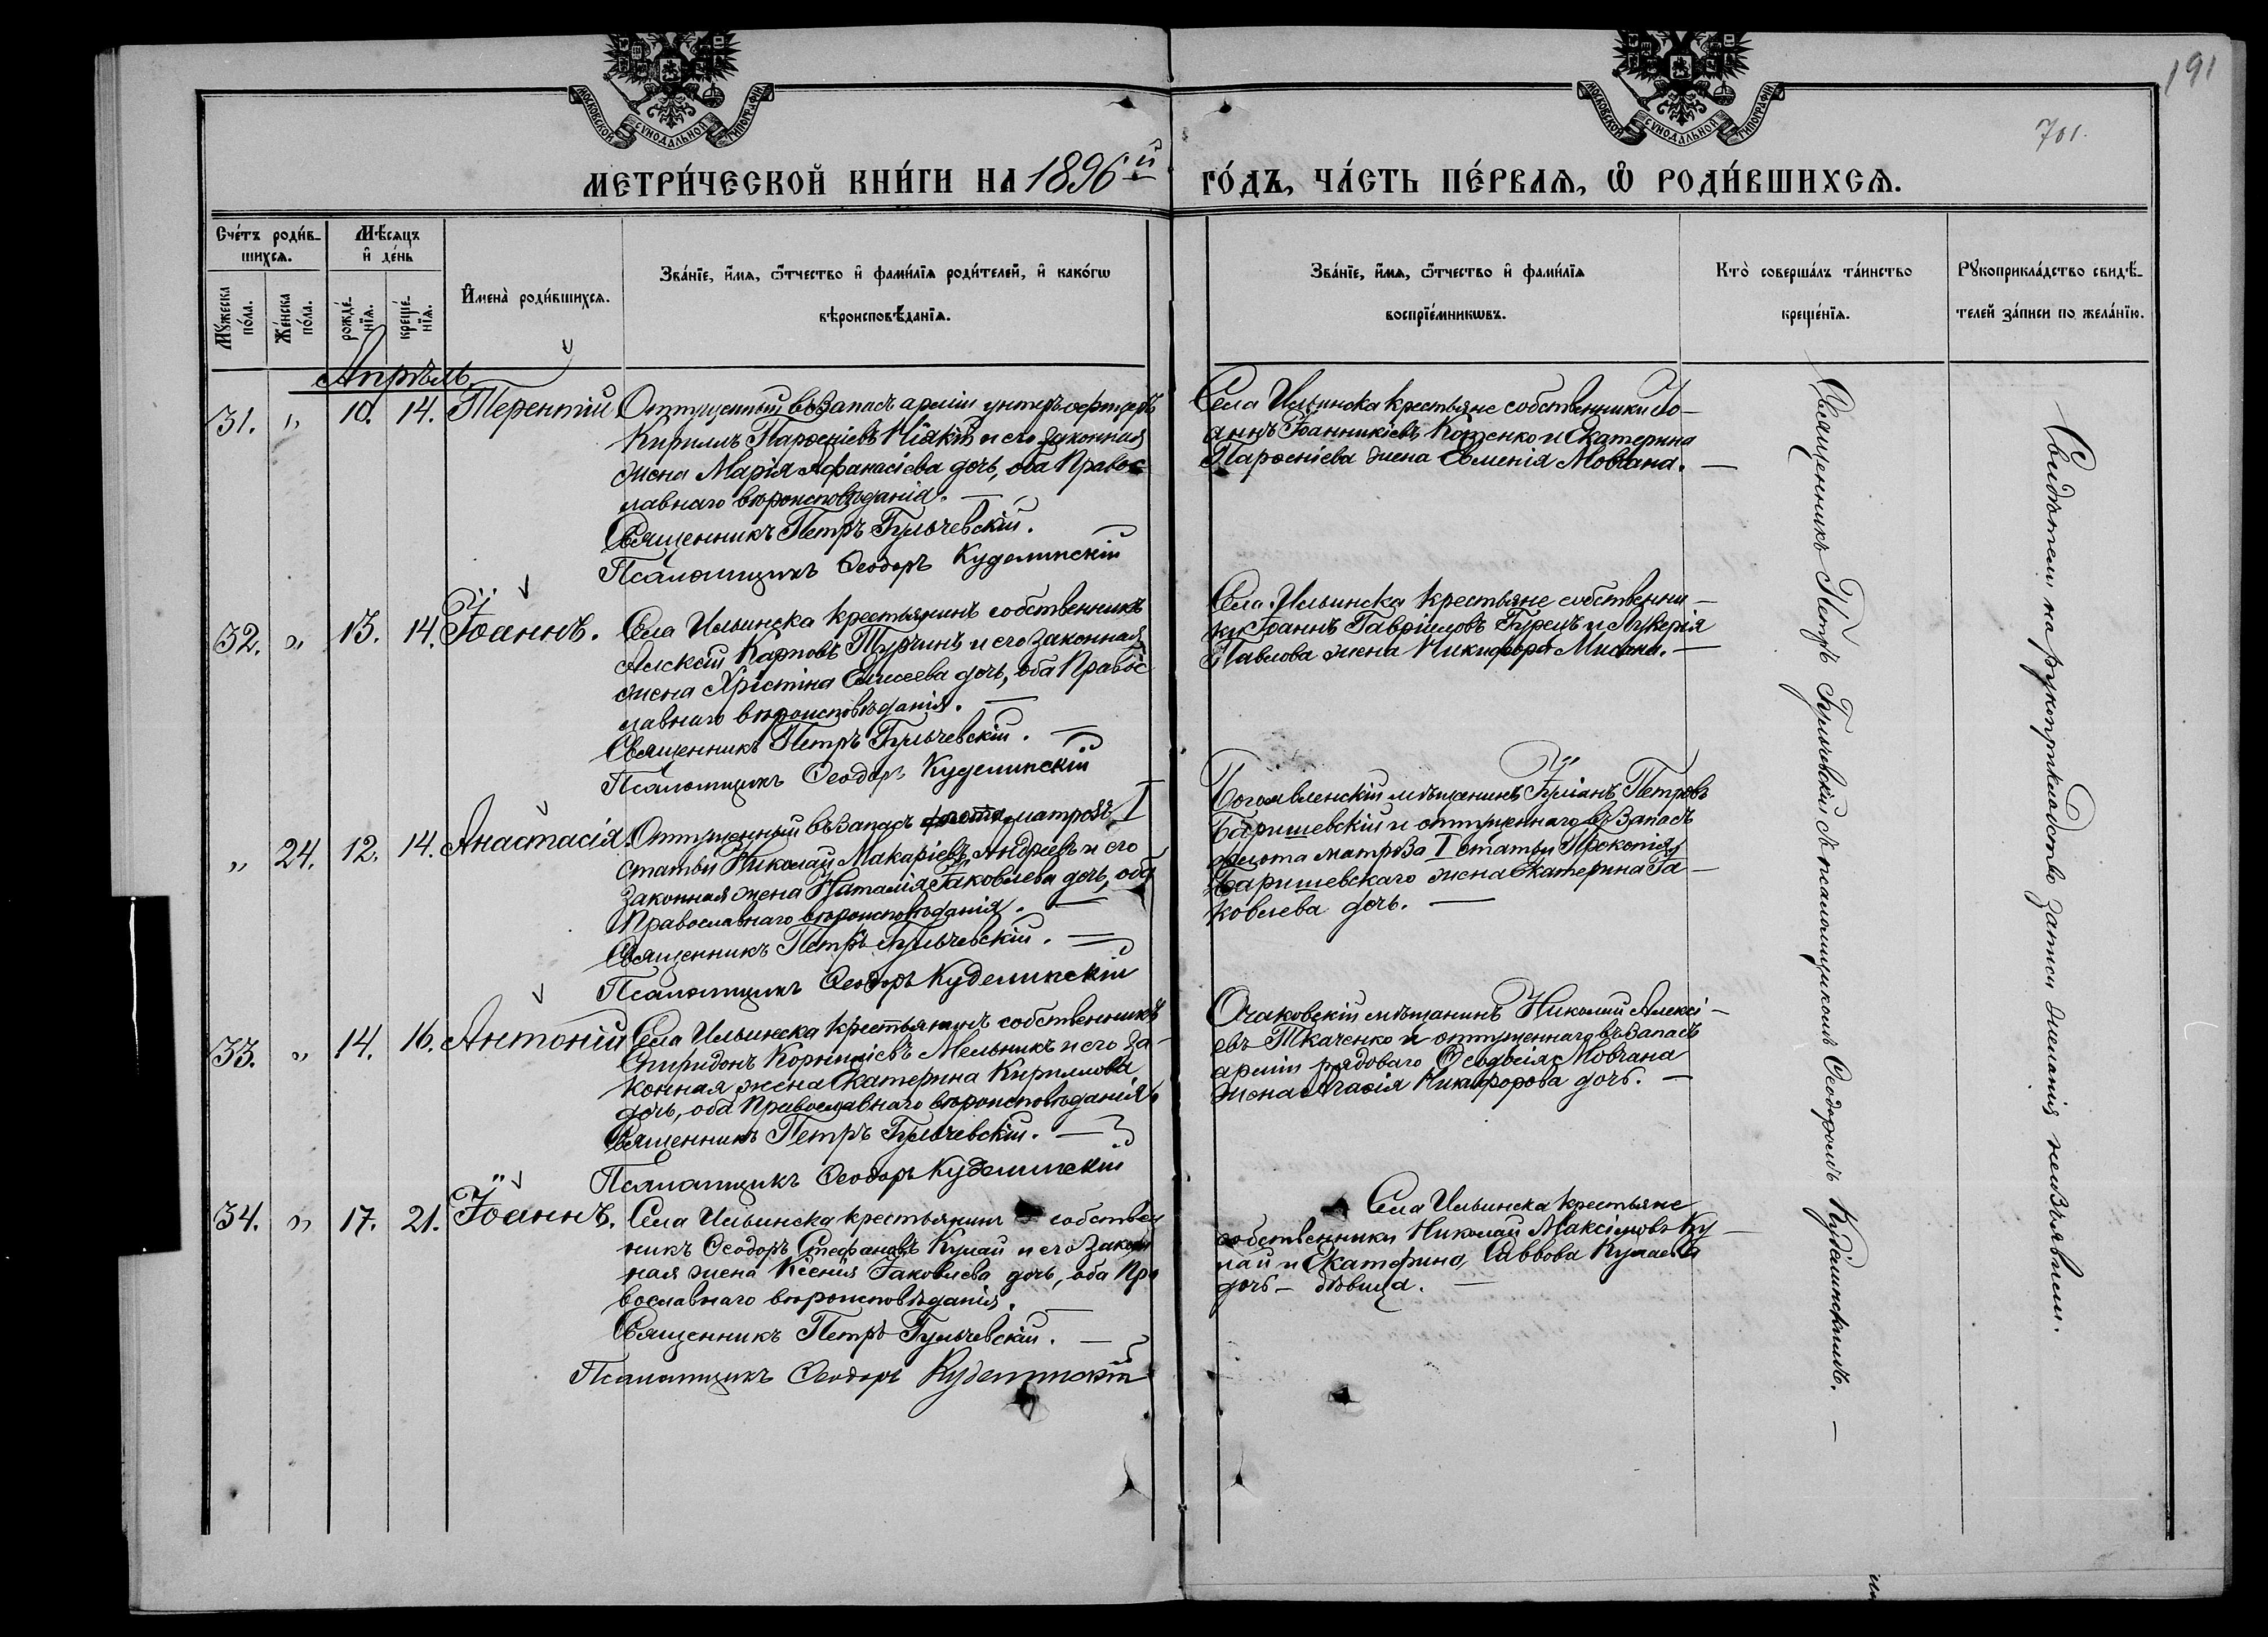 191
701.
МОСКОВСКОЙ СУНОДАЛЬНОЙ ТИПОГРАФІИ
МОСКОВСКОЙ СУНОДАЛЬНОЙ ТИПОГРАФІИ
МЕТРИ́ЧЕСКОЙ КНИ́ГИ НА 1896й ГО́ДЪ, ЧА́СТЬ ПЕ́РВАЯ, Ѡ РОДИ́ВШИХСЯ.
Сче́тъ роди́в-
шихся.
Мѣ́сяцъ
и҆ де́нь
Мꙋ́жеска по́ла.
Же́нска по́ла.
рожде́-
нїѧ.
креще́-
нїѧ.
И҆мена̀ роди́вшихся.
Зва́нїе, и҆́мя, ѻ҆́тчество и҆ фами́лїя роди́телей, и҆ како́гѡ
вѣроисповѣ́данїя.
Зва́нїе, и҆́мя, ѻ҆́тчество и҆ фами́лїя
воспрїе́мникѡвъ.
Кто̀ соверша́лъ та́инство
креще́нїя.
Рꙋкоприкла́дство свидѣ́-
телей за́писи по жела́нїю.
Апрѣль.
31. " 10. 14. Терентій
Отпущенный въ запасъ арміи унтеръ-офицеръ
Кириллъ Парѳеніевъ и его законная
жена Марія Аѳанасіева дочь, оба Правос
лавнаго вѣроисповѣданія.
Священникъ Петръ Гульчевскій.
Псаломщикъ Ѳеодоръ Куделинскій
Села Ильинска крестьяне собственники Іо-
аннъ Іоанникіевъ Коженко и Екатерина
Парѳеніева жена Евменія Мовчана.
32. " 13. 14. Іоаннъ.
Села Ильинска крестьянинъ собственникъ
Алексій Карповъ Турчинъ и его законная
жена Христина Елисеева дочь, оба Правос
лавнаго вѣроисповѣданія.
Священникъ Петръ Гульчевскій.
Псаломщикъ Ѳеодоръ Куделинскій
Села Ильинска крестьяне собственни-
ки Іоаннъ Гавріиловъ Гурецъ и Лукерія
Павлова жена Никифора
" 24. 12. 14. Анастасія.
Отпущенный въ запасъ флота матрозъ I
статьи Николай Макаріевъ Андреевъ и его
законная жена Наталія Іаковлева дочь, оба
Православнаго вѣроисповѣданія.
Священникъ Петръ Гульчевскій.
Псаломщикъ Ѳеодоръ Куделинскій
Богоявленскій мѣщанинъ Іуліанъ Петровъ
Баришевскій и отпущеннаго въ запасъ
флота матроза I статьи Прокопія
Баришевскаго жена Екатерина Іа-
ковлева дочь.
33. " 14. 16. Антоній
Села Ильинска крестьянинъ собственникъ
Спиридонъ Корниліевъ Мельникъ и его за-
конная жена Екатерина Кириллова
дочь, оба Православнаго вѣроисповѣданія.
Священникъ Петръ Гульчевскій.
Псаломщикъ Ѳеодоръ Куделинскій
Очаковскій мѣщанинъ Николай Алексі-
евъ Ткаченко и отпущеннаго въ запасъ
арміи рядоваго Ѳеодосія Мовчана
жена Агаѳія Никифорова дочь.
34. " 17. 21. Іоаннъ.
Села Ильинска крестьянинъ собствен
никъ Ѳеодоръ Стефановъ Кулай и его закон
ная жена Ксенія Іаковлева дочь, оба Пра
вославнаго вѣроисповѣданія.
Священникъ Петръ Гульчевскій.
Псаломщикъ Ѳеодоръ Куделинскій
Села Ильинска крестьяне
собственники Николай Максімовъ Ку-
лай и Екатерина Саввова Кулаева
дочь - дѣвица.
Священникъ Петръ Гульчевскій съ псаломщикомъ Ѳеодоромъ Куделинскимъ.
Свидѣтели на рукоприкладство записи желанія не изъявили.